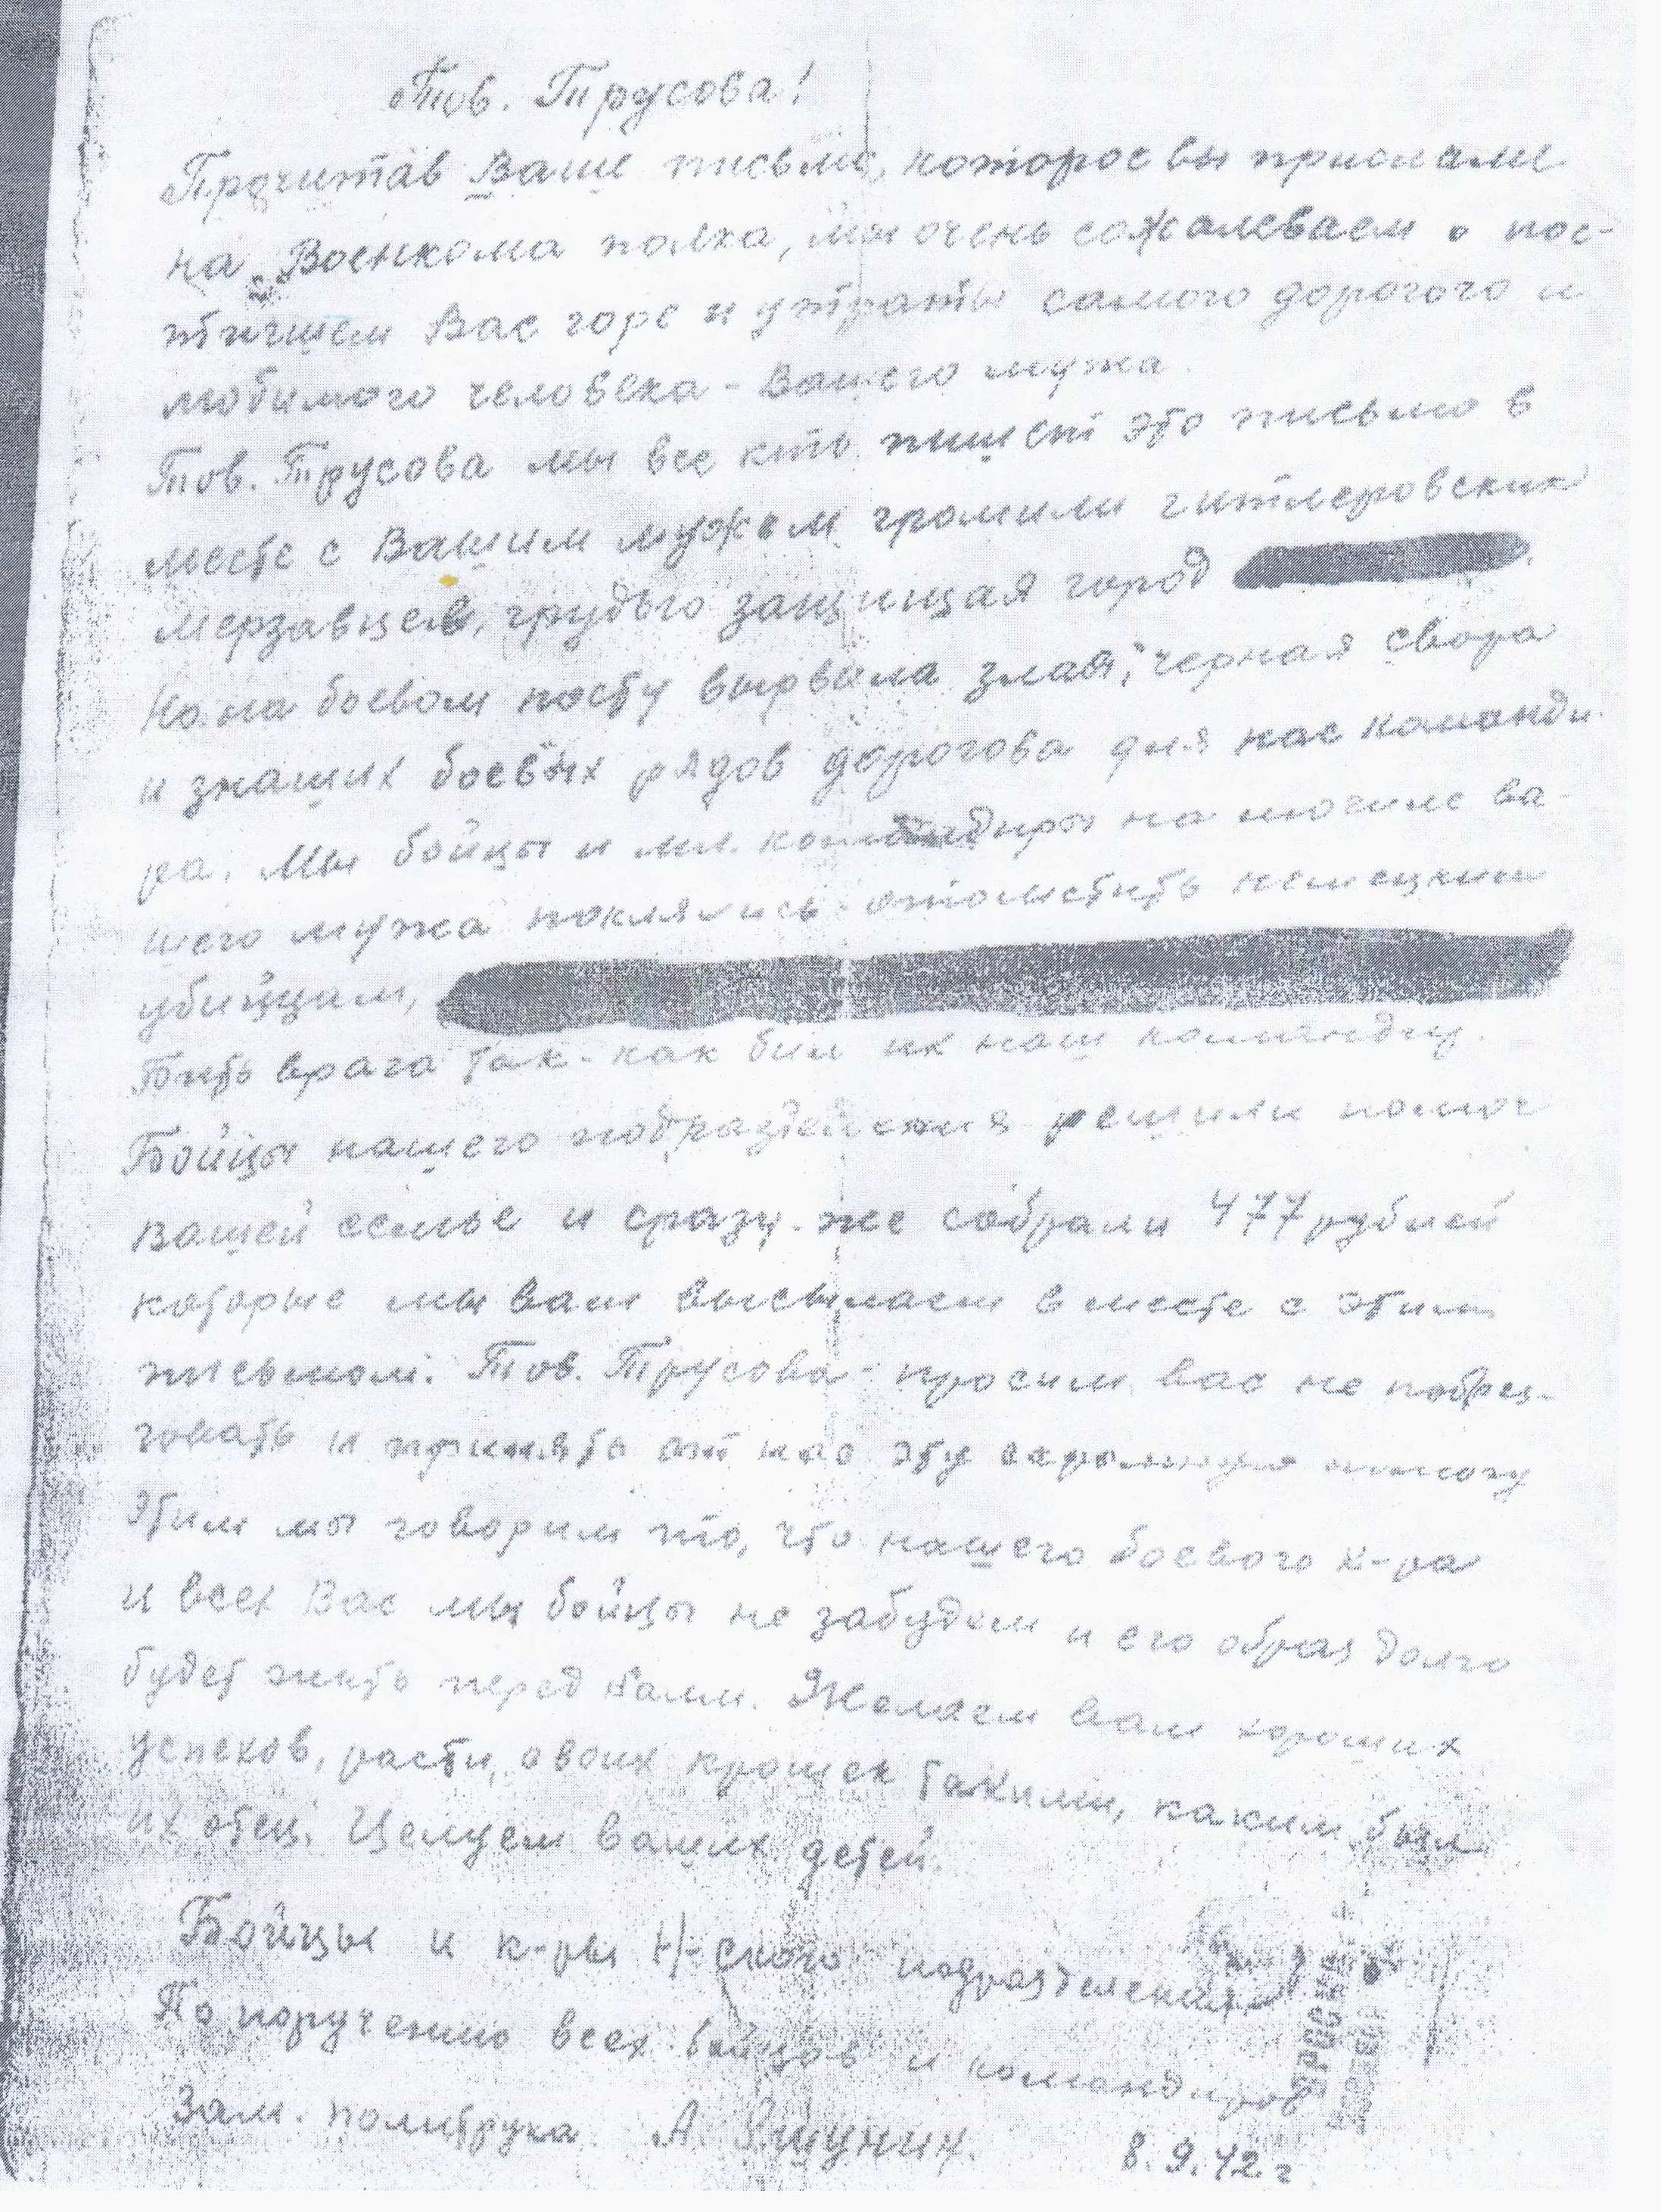 Тов. Трусова!
Прочитав Ваше письмо, которое вы прислали
на Военкома полка, мы очень сожалеваем о пос-
тигшем Вас горе и утраты самого дорогого и
любимого человека - Вашего мужа.
Тов. Трусова мы все кто пишет это письмо в
месте с Вашим мужем громили гитлеровских
мерзавцев, грудью защищая город
Но на боевом посту вырвала злая, черная свора
и знаших боевых рядов дорогова для нас команди-
ра. Мы бойцы и мл. командиры на могиле ва-
шего мужа поклялись отомстить немецким
убийцам,
Бить врага так-как бил их наш командир.
Бойцы нашего подразделения решили помоч
вашей семье и сразу-же собрали 477 рублей
которые мы вам высылаем в месте с этим
письмом. Тов. Трусова - просим вас не побрез-
говать и принять от нас эту скромную помощь
Этим мы говорим то, что нашего боевого к-ра
и всех Вас мы бойцы не забудем и его образ долго
будет жить перед нами. Желаем вам хороших
успехов, расти своих крошек такими, каким был
их отец. Целуем ваших детей.
Бойцы и к-ры Н-ского подразделения
По поручению всех бойцов и командиров
Зам. политрука А.
8.9.42 г